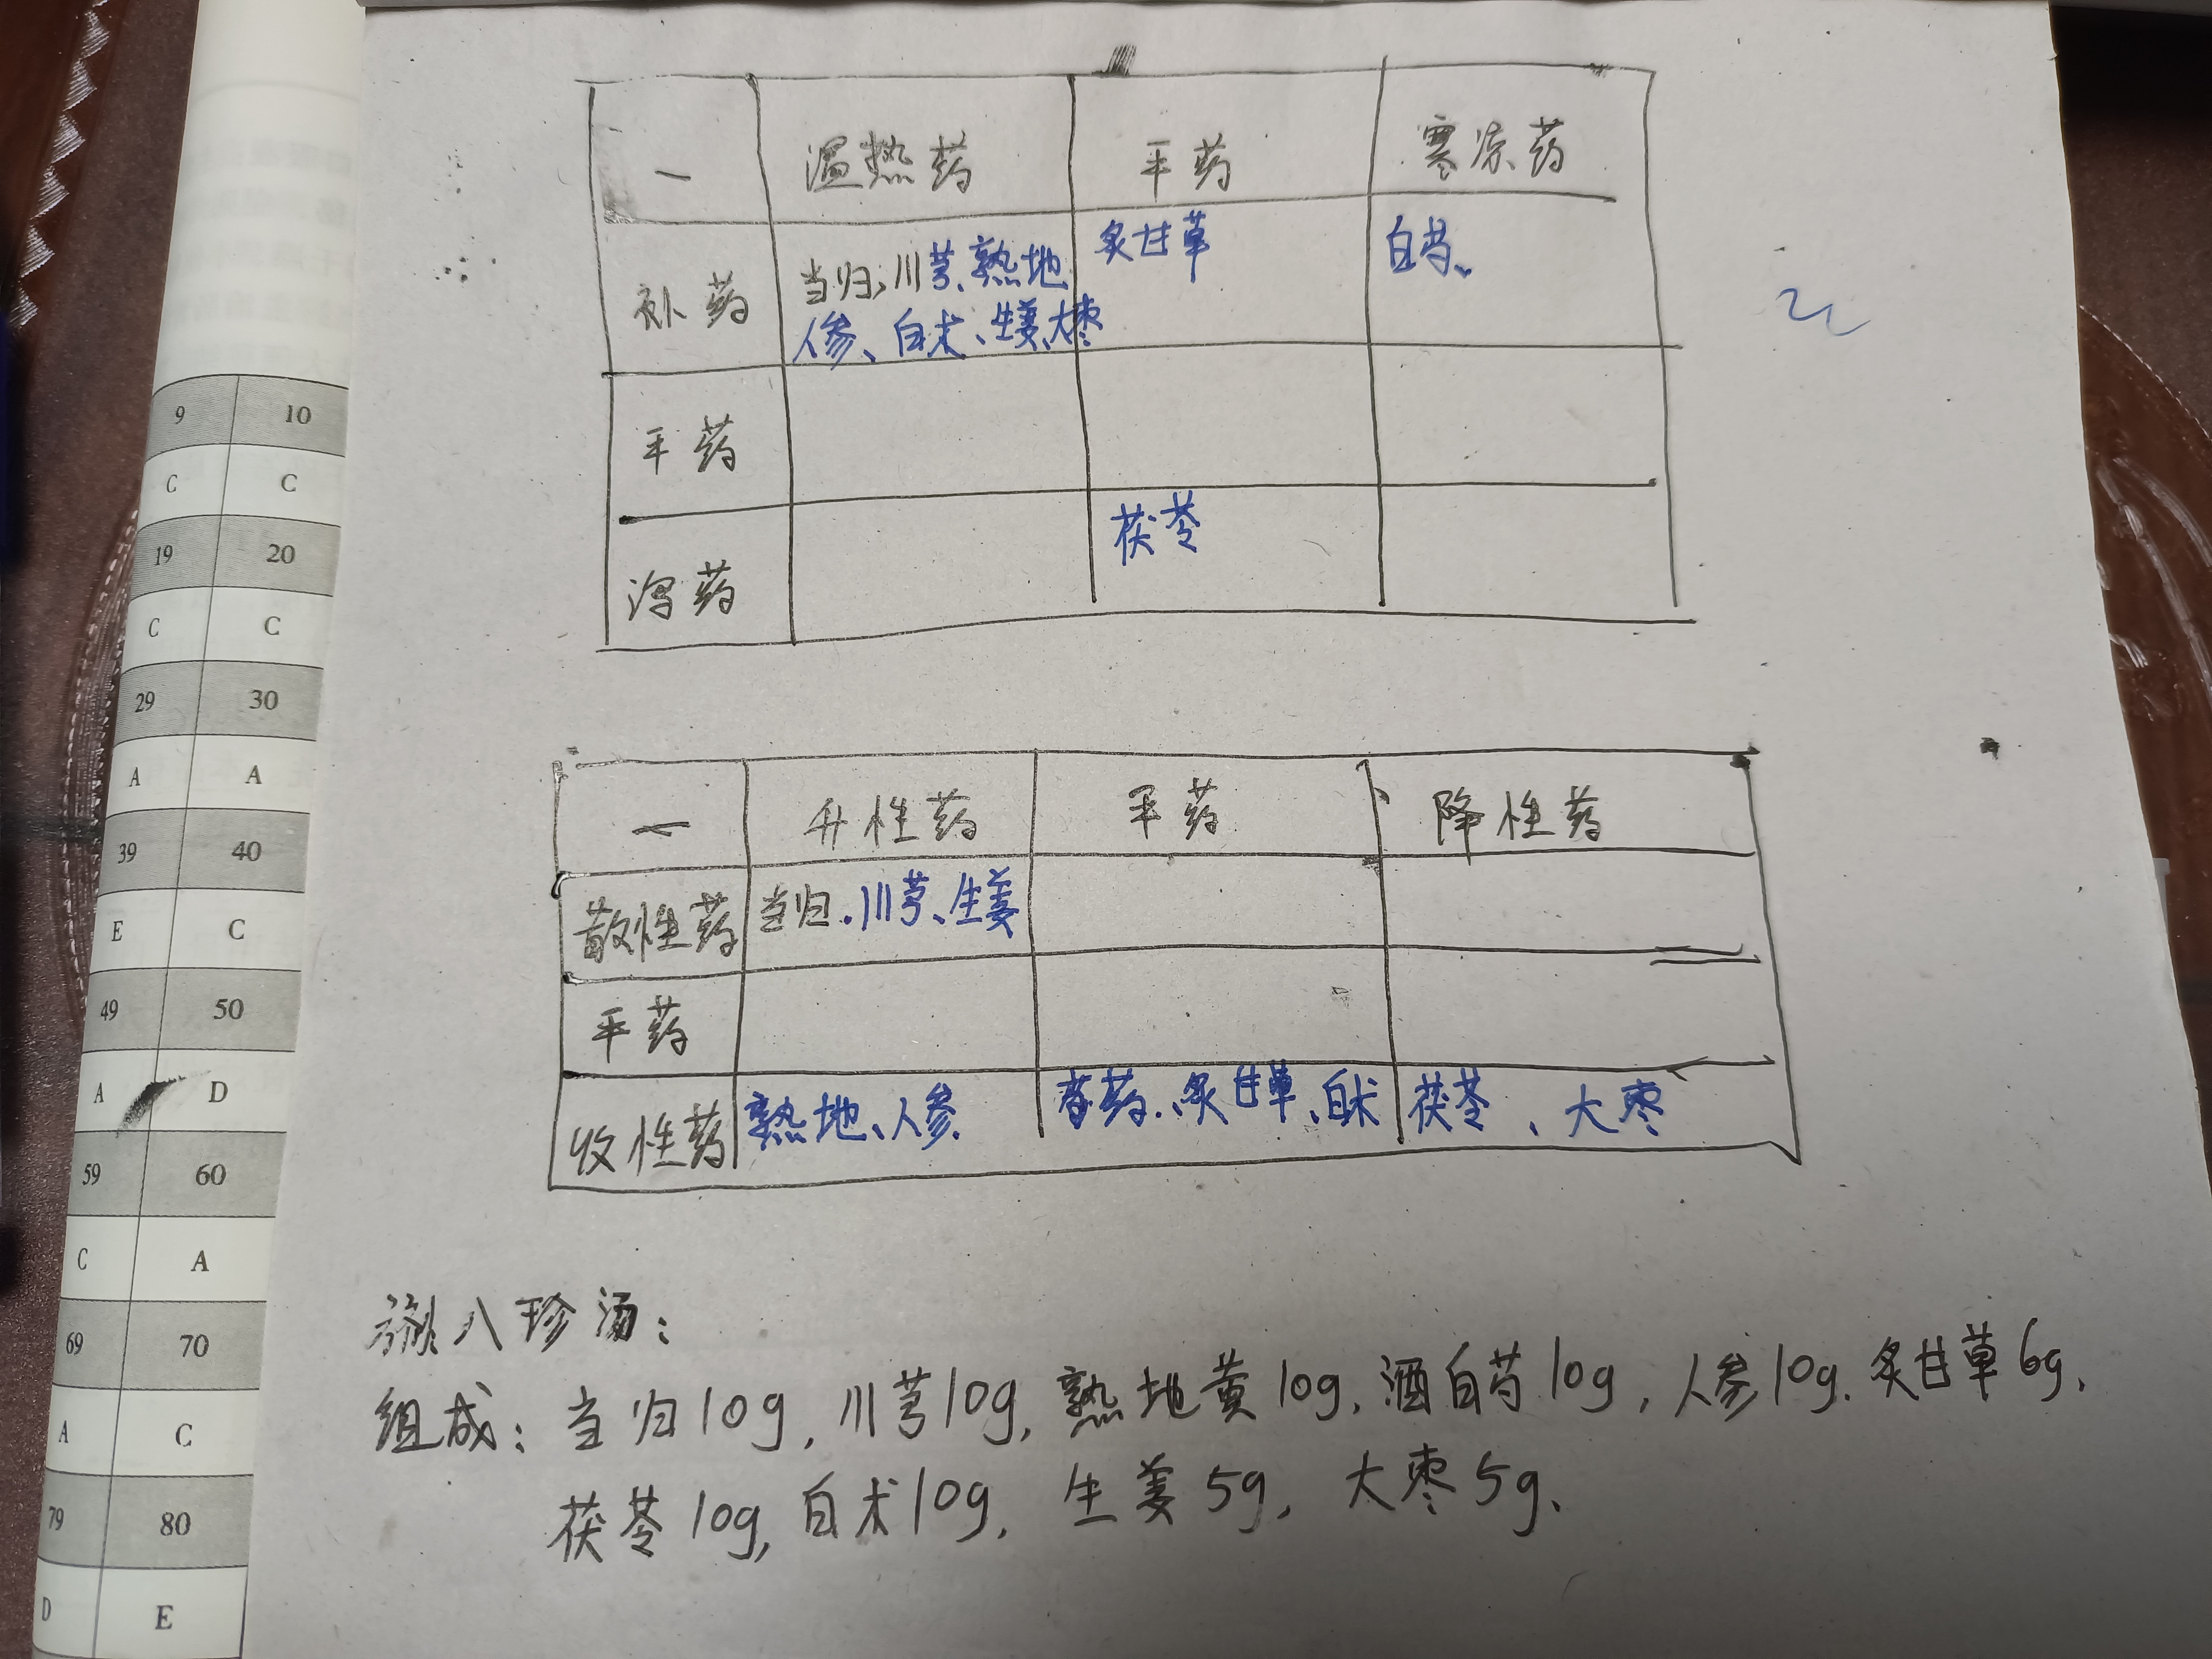 一 温热药 平药 寒凉药
补药 当归、川芎、熟地 炙甘草 白芍、
人参、白术、生姜、大枣
平药
泻药 茯苓
一 升性药 平药 降性药
散性药 当归、川芎、生姜
平药
收性药 熟地、人参 芍药、炙甘草、白术 茯苓、大枣
八珍汤:
组成:当归10g,川芎10g,熟地黄10g,酒白芍10g,人参10g、炙甘草6g、
茯苓10g,白术10g,生姜5g,大枣5g、
9 10
C C
19 20
C C
29 30
A A
39 40
E C
49 50
A D
59 60
C A
69 70
A C
79 80
D E